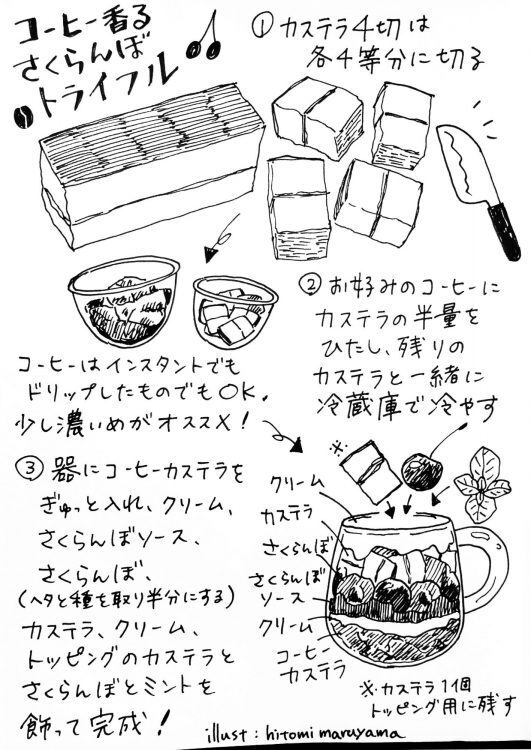 コーヒー香る
さくらんぼ
トライフル
① カステラ4切は
各4等分に切る
② お好みのコーヒーに
カステラの半量を
ひたし、残りの
カステラと一緒に
冷蔵庫で冷やす
コーヒーはインスタントでも
ドリップしたものでもOK。
少し濃いめがオススメ!
③ 器にコーヒーカステラを
ぎゅっと入れ、クリーム、
さくらんぼソース、
さくらんぼ、
(ヘタと種を取り半分にする)
カステラ、クリーム、
トッピングのカステラと
さくらんぼとミントを
飾って完成!
※
クリーム
カステラ
さくらんぼ
さくらんぼ
ソース
クリーム
コーヒー
カステラ
※カステラ1個
トッピング用に残す
illust : hitomi maruyama